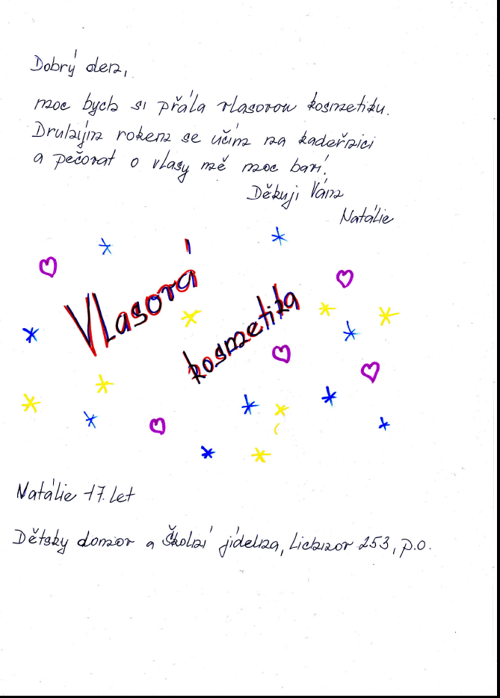 Dobrý den,
moc bych si přála vlasovou kosmetiku.
Druhým rokem se učím na kadeřnici
a pečovat o vlasy mě moc baví.
Děkuji Vám
Natálie
Vlasová
kosmetika
Natálie 17. let
Dětsky domov a Školní jídelna, Lichnov 253, p.o.